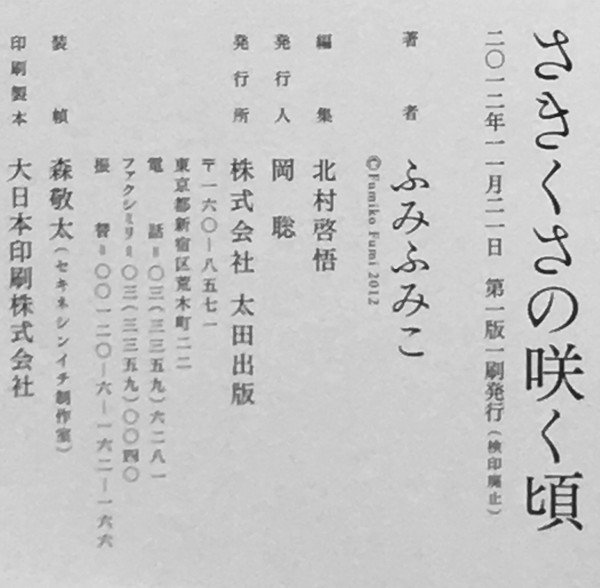 さきくさの咲く頃
二〇一二年一一月二一日　第一版一刷発行(検印廃止)
著者　ふみふみこ
©Fumiko Fumi 2012
編集　北村啓悟
発行人　岡　聡
発行所　株式会社 太田出版
〒一六〇―八五七一
東京都新宿区荒木町二二
電話=〇三(三三五九)六二八一
ファクシミリ=〇三(三三五九)〇〇四〇
振替=〇〇一二〇―六―一六二一六六
装幀　森敬太(セキネシンイチ制作室)
印刷製本　大日本印刷株式会社